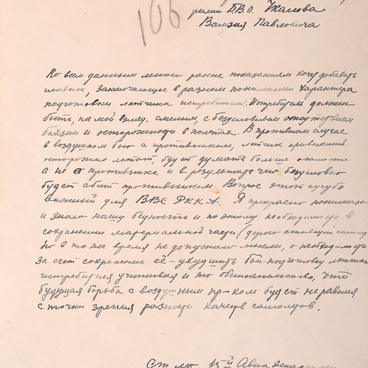 106
рилии БВО. Чкалова
Валерия Павловича
Ко всем данным мною ранее показаниям хочу добавить
главное, заключающее в разном понимании характера
подготовки летчика истребителя. Истребитель должен
быть, на мой взгляд, смелым, с безусловным отсутствием
боязни и осторожности в полетах. В противном случае
в воздушном бою с противником, летчик привыкший
осторожно летать, будет думать больше о самолете
а не о противнике и в результате чего безусловно
будет сбит противником. Вопрос этот сугубо
важный для ВВС РККА. Я прекрасно понимаю
и знаю нашу бедность и поэтому необходимость
сохранения материальной части (дорого стоющий самолет)
но в то же время не допустимо мыслим, о необходимости
за счет сохранения её - ухудшить боев. подготовку летчика
истребителя учитывая и то обстоятельство, что
будущая борьба с воздушным пр-ком будет неравная
с точки зрения разницы качеств самолетов.
Ст. лет. 15й Авиа эскадрильи